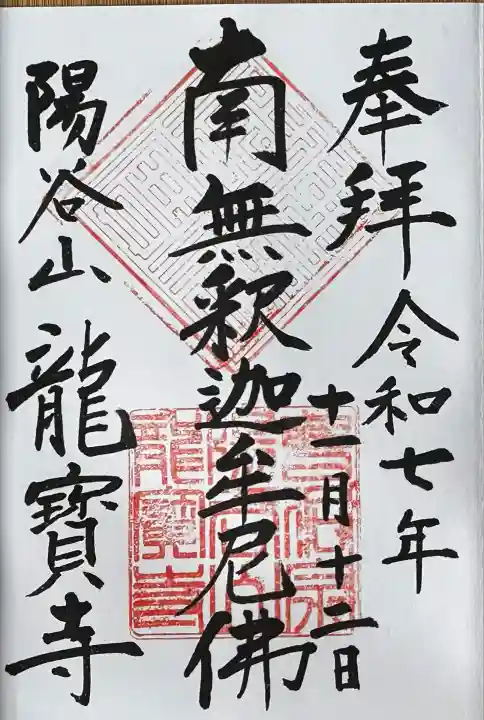 奉拝 令和七年
十一月十二日
南無釈迦牟尼佛
陽谷山 龍寶寺